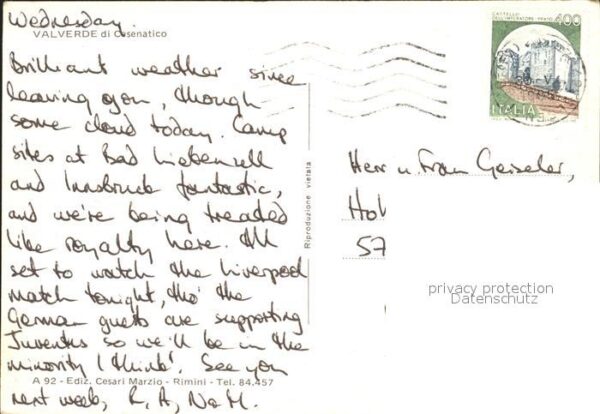 Wednesday.
VALVERDE di Cesenatico
Brilliant weather since
leaving you, though
some cloud today. Camp
sites at Bad Liebenzell
and Innsbruck fantastic,
and we're being treated
like royalty here. All
set to watch the Liverpool
match tonight, tho' the
German guests are supporting
Juventus so we'll be in the
minority I think! See you
A 92 - Ediz. Cesari Marzio - Rimini - Tel. 84.457
next week, R, A, N & M.
Riproduzione vietata
CASTELLO
DELL'IMPERATORE - PRATO
400
ITALIA
Herr u. Frau Geiseler,
Hol
57
privacy protection
Datenschutz